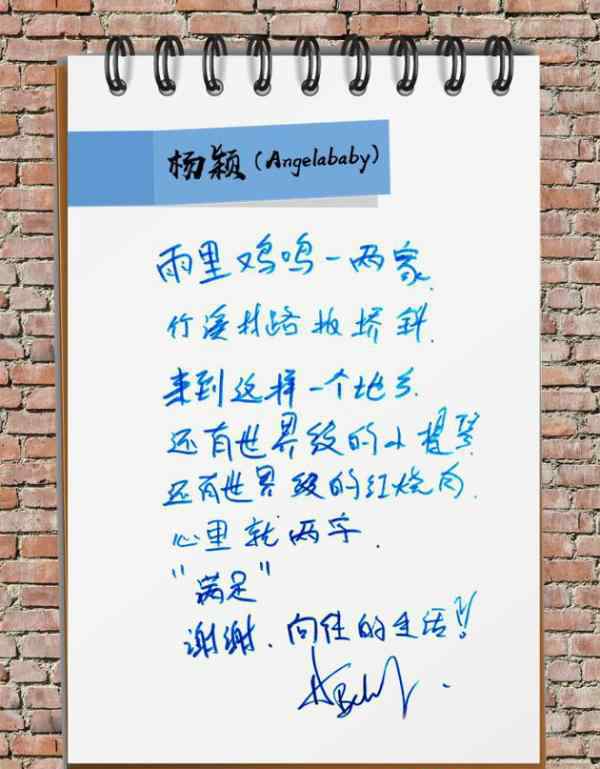 杨颖（Angelababy）
雨里鸡鸣一两家
竹溪村路板桥斜.
来到这样一个地方.
还有世界级的小提琴
还有世界级的红烧肉.
心里就两字.
“满足”
谢谢.向往的生活!!